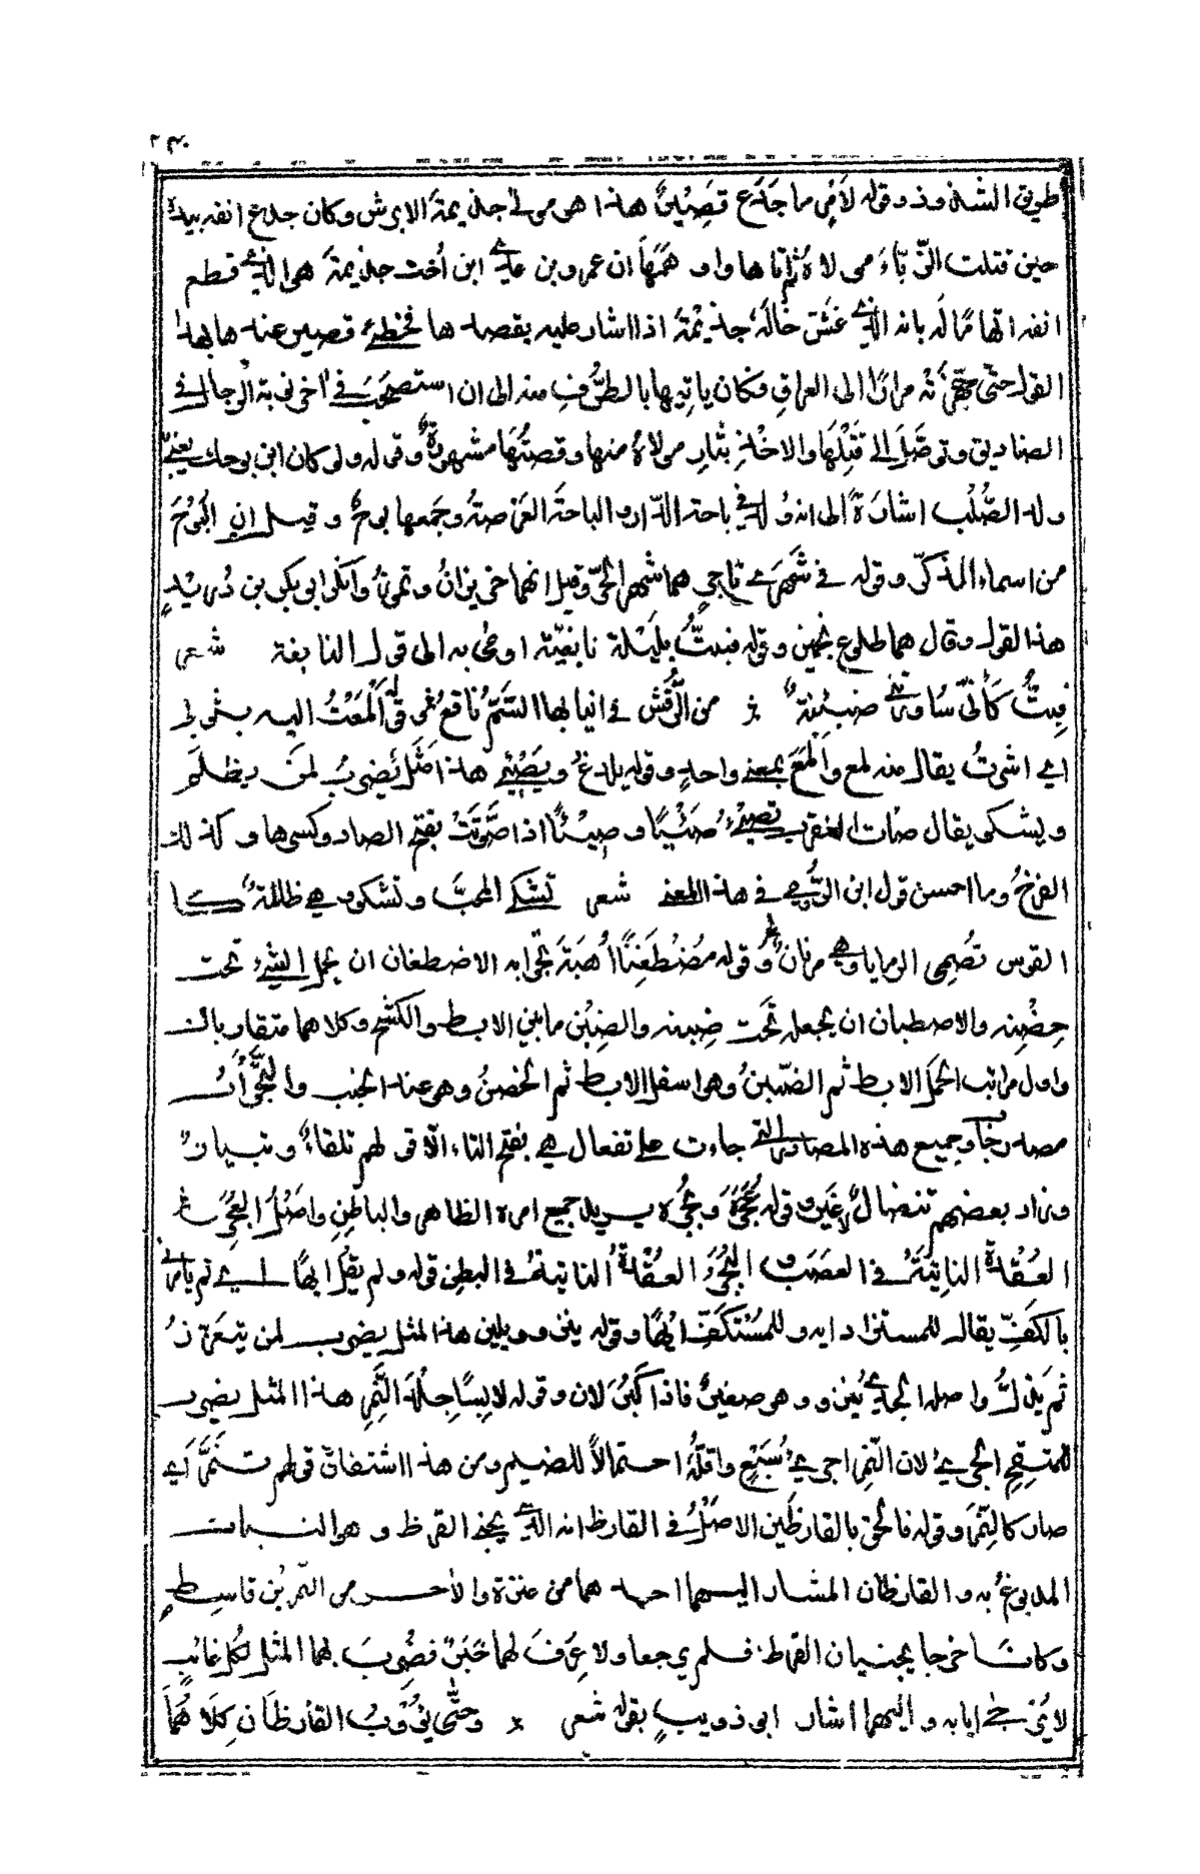 ٢٣٠
طريق الشذوذ وقوله لأمر ما جدع قصير هذا هو مولى جذيمة الابرش وكان جدع انفه بيده
حين قتلت الزباء مولاه ثم اتاها واوهمها ان عمرو بن عدي ابن أخت جذيمة هو الذي قطع
انفه اتهاما له بانه الذي غش خاله جذيمة اذ اشار عليه بقصدها فحظي قصير عندها بهذا
القول حتى جهزته مرارا الى العراق فكان ياتيها بالطرف منه الى ان استصحب في آخر نوبة الرجال في
الصناديق وتوصل الى قتلها والاخذ بثار مولاه منها وقصتها مشهورة وقوله ولو كان ابن بوحك يعني
ولد الصلب اشارة الى انه ولد في باحة الدار والباحة العرصة وجمعها بوح وقيل ان البوح
من اسماء الذكر وقوله في شهري ناجر هما شهرا الحر وقيل انهما حزيران وتموز وانكر ابو بكر بن دريد
هذا القول وقال هما طلوع نجمين وقوله فبت بليلة نابغية اومى به الى قول النابغة شعر
فبت كأني ساورتني ضئيلة من الرقش في انيابها السم ناقع قوله ألمعت اليه بشرط
اي اشرت يقال منه لمع وألمع بمعنى واحد وقوله يلدغ ويصئي هذا مثل يضرب لمن يظلم
ويشكو يقال صأت العقرب تصئي صئيا وصيئا اذا صوتت بفتح الصاد وكسرها وكذلك
الفرخ وما احسن قول ابن الرومي في هذا المعنى شعر تشكي المحب وتشكو وهي ظالمة كا
القوس تصمي الرمايا وهي مرنان وقوله مضطغنا أهبة تجوابه الاضطغان ان يحمل الشيء تحت
حضنه والاضطبان ان يجعله تحت ضبنه والضبن ما بين الابط والكشح وكلاهما متقاربان
واول مراتب الحمل الابط ثم الضبن وهو اسفل الابط ثم الحضن وهو عند الجنب والتجوال
مصدر جا وجميع هذه المصادر التي جاءت على تفعال هي بفتح التاء الا قولهم تلقاء وتبيان
وزاد بعضهم تنضال لا غير وقوله عجره وبجره يريد جميع امره الظاهر والباطن واصل العجر
العقدة الناتئة في العصب والبجر العقدة الناتئة في البطن قوله ولم يقل ايها اي لم يامرني
بالكف يقال للمستزاد ايه وللمستكف ايها وقوله ينزو ويلين هذا المثل يضرب لمن يتعزز
ثم يذل واصله الجدي ينزو وهو صغير فاذا كبر لان وقوله لابسا جلد النمر هذا المثل يضرب
للمتوقح الجري لان النمر اجري سبع واقله احتمالا للضيم ومن هذا اشتقاق قولهم تنمر اي
صار كالنمر وقوله فالحق بالقارظين الاصل في القارظ انه الذي يجني القرظ وهو النبات
المدبوغ به والقارظان المشار اليهما احدهما من عنزة والآخر من النمر بن قاسط
وكانا خرجا يجنيان القرظ فلم يرجعا ولا عرف لهما خبر فضرب بهما المثل لكل غائب
لا يرجى ايابه واليهما اشار ابو ذويب بقوله شعر وحتى يؤوب القارظان كلاهما